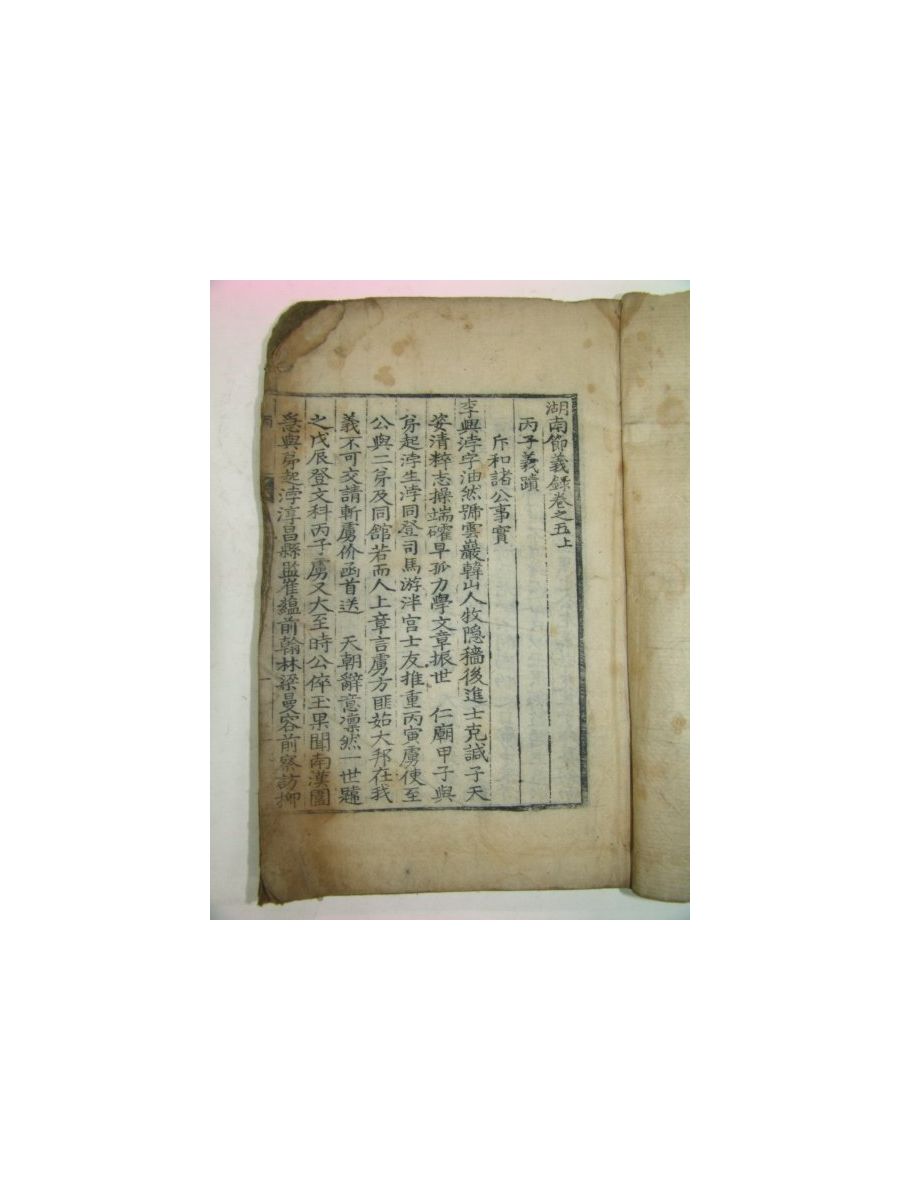 湖南節義錄卷之五上
丙子義蹟
斥和諸公事實
李興浡字油然號雲巖韓山人牧隱穡後進士克諴子天
姿清粹志操端確早孤力學文章振世 仁廟甲子與
弟起浡生浡同登司馬游泮宮士友推重丙寅虜使至
公與二弟及同舘若而人上章言虜方匪茹大邦在我
義不可交請斬虜价函首送 天朝辭意凛然一世韙
之戊辰登文科丙子虜又大至時公倅玉果聞南漢圍
急與弟起浡淳昌縣監崔蘊前翰林梁曼容前察訪柳